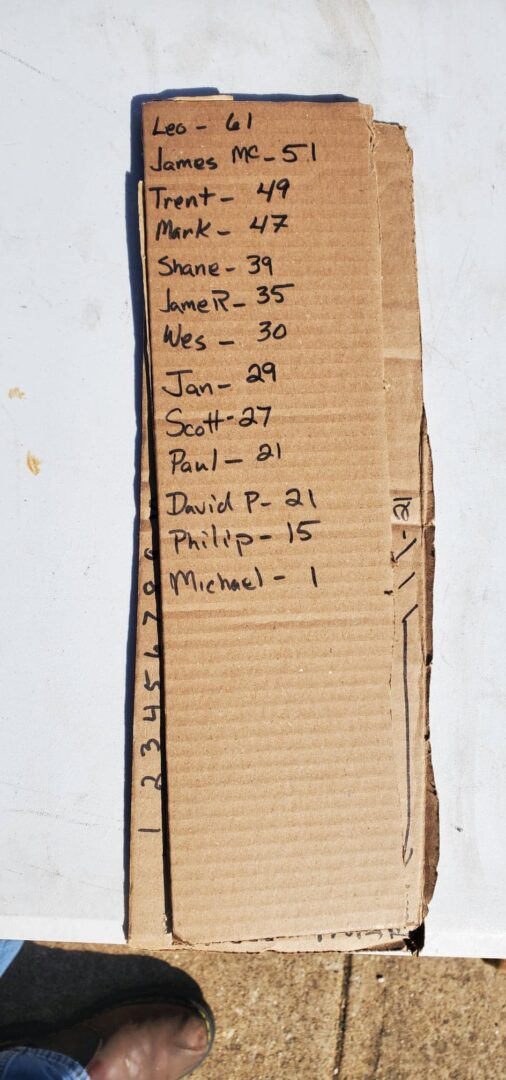 Leo - 61
James Mc - 51
Trent - 49
Mark - 47
Shane - 39
Jame R - 35
Wes - 30
Jan - 29
Scott - 27
Paul - 21
David P - 21
Philip - 15
Michael - 1
1 2 3 4 5 6 7 8
- 21